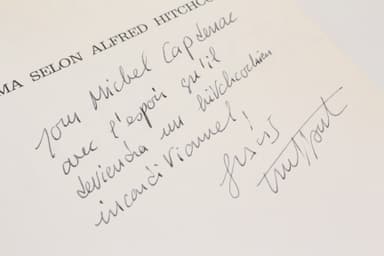 MA SELON ALFRED HITCHCO
pour Michel Capdenac
avec l'espoir qu'il
deviendra un hitchcockien
inconditionnel !
Truffaut